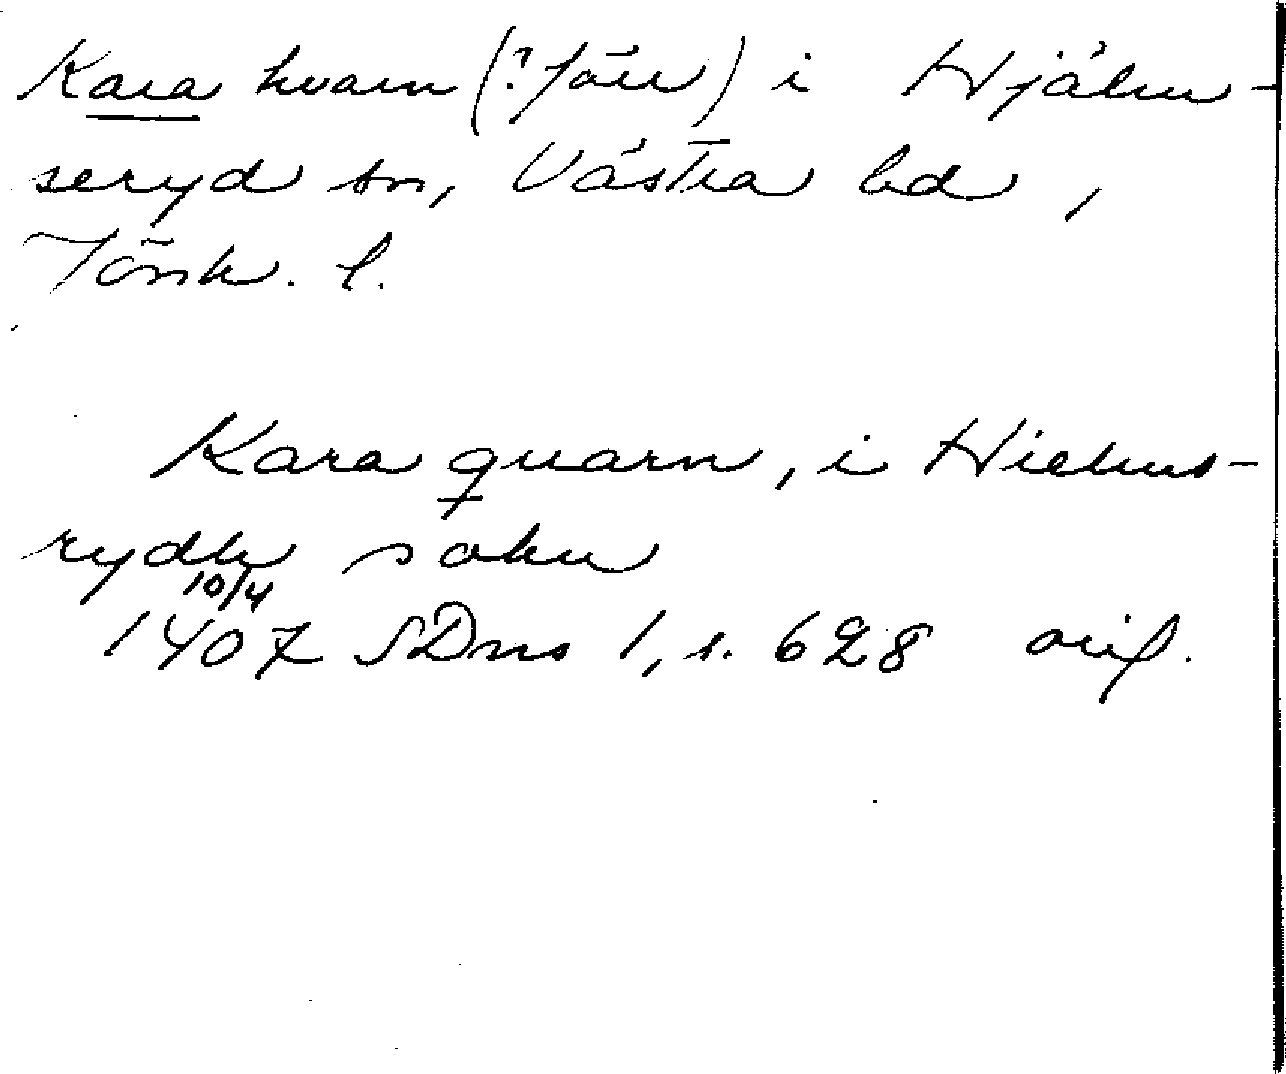 Kara kvarn (? förr) i Hjälm-
seryd sn, Västra hd,
Jönk. l.
Kara quarn, i Hielms-
rydh sokn
10/4
1407 SDns 1, s. 628 orig.